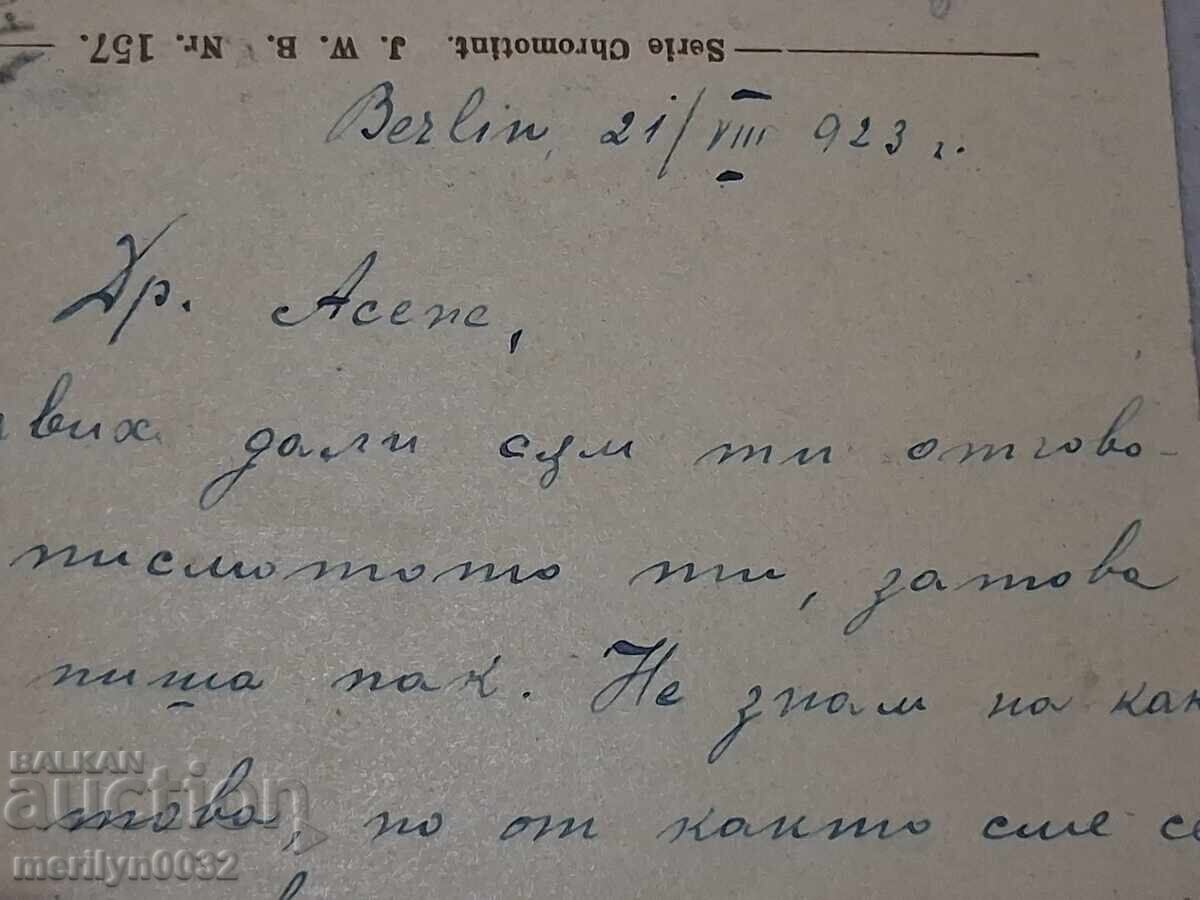 Serie Chromotint. J. W. B. Nr. 157.
Berlin, 21/VIII 923 г.
Др. Асене,
вих дали съм ти отгово-
писмотото ти, затова
пиша пак. Не знам на как
това, но от както сме се
BALKAN
auction
merilyn0032